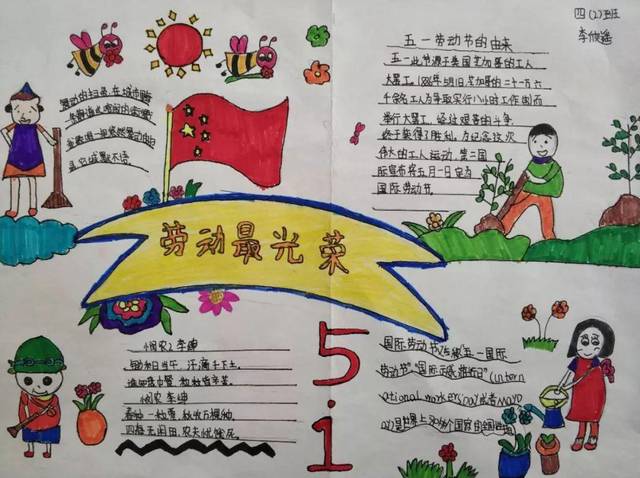 四(2)班
李俊遥
五一劳动节的由来
五一此节源于美国芝加哥的工人
大罢工,1886年5月1日芝加哥的二十一万六
千余名工人为争取实行八小时工作制而
举行大罢工,经过艰苦的斗争
终于获得了胜利,为纪念这次
伟大的工人运动,第二国
际宣布将五月一日定为
国际劳动节
劳动最光荣
悯农2 李绅
锄禾日当午,汗滴禾下土。
谁知盘中餐,粒粒皆辛苦。
悯农 李绅
春种一粒粟,秋收万颗粮。
四海无闲田,农夫犹饿死。
5.1
国际劳动节又称"五一国际
劳动节""国际示威游行日"(intern
ational workersDay或者MayD
ay)是世界上80多个国家的全国性